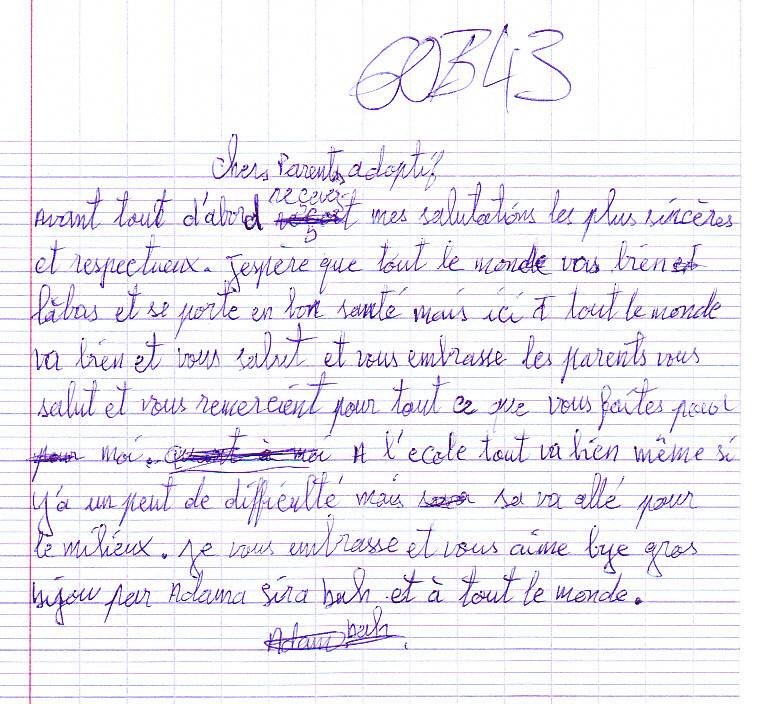 GOB43
Chers Parents adoptif
recever
Avant tout d'abord mes salutations les plus sincères
et respectueux. J'espère que tout le monde vas bien
labas et se porte en bon santé mais ici tout le monde
va bien et vous salut et vous embrasse les parents vous
salut et vous remercient pour tout ce que vous faites pour
moi. A l'ecole tout va bien même si
y'a un peut de difficulté mais sa va allé pour
le milieux. Je vous embrasse et vous aime bye gros
bijou par Adama Sira bah et à tout le monde.
Adam bah.